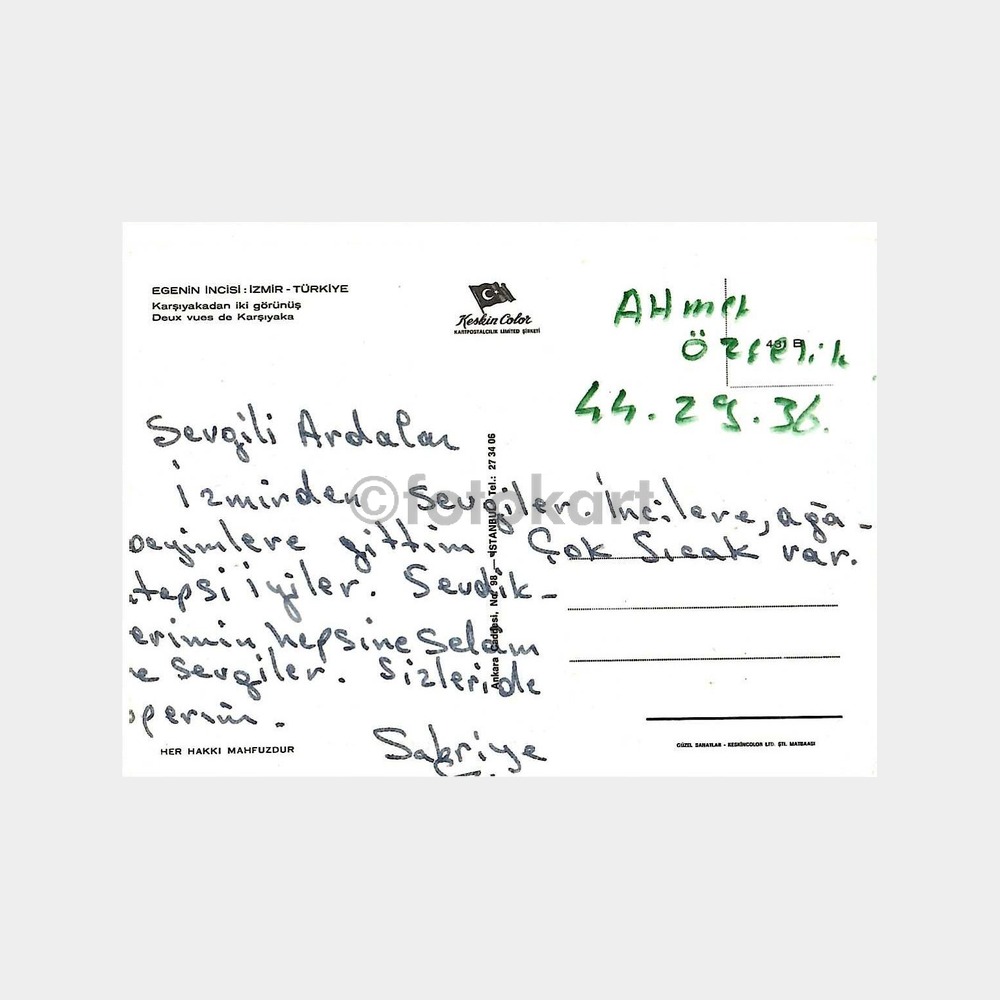 EGENİN İNCİSİ : İZMİR - TÜRKİYE
Karşıyakadan iki görünüş
Deux vues de Karşıyaka
Keskin Color
KARTPOSTALCILIK LIMITED ŞİRKETİ
AHmet
431 B
44.29.36.
Sevgili Ardalar
İzmirden Sevgiler. İncilere, ağa-
beyimlere gittim. Çok Sıcak var.
Hepsi iyiler. Sevdik-
lerimin hepsine Selam
ve Sevgiler. Sizleride
öperim.
Sabriye
Ankara Caddesi, No. 98, — İSTANBUL Tel.: 27 34 06
©fotokart
HER HAKKI MAHFUZDUR
GÜZEL SANATLAR - KESKİNCOLOR LTD. ŞTİ. MATBAASI